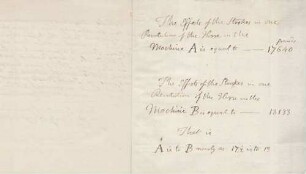 The Effects of the Strokes in one
Revolution of the Three in the
pounds
Machine A is equal to — 17640
The Effects of the Strokes in one
Revolution of the Three in the
Machine B is equal to — 13
That is
A is to B nearly as 17½ to 13